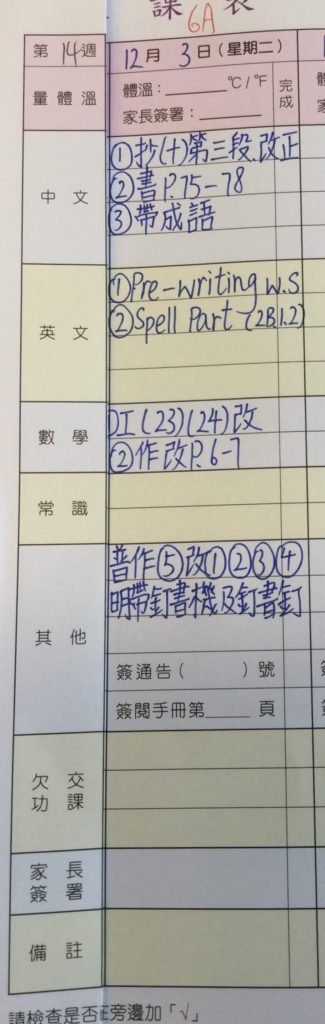 課 表
6A
第 14 週
12 月 3 日 (星期二)
量 體 溫
體溫：______ °C / °F
家長簽署：______
完成
中 文
①抄(十)第三段.改正
②書P.75-78
③帶成語
英 文
①Pre-writing W.S
②Spell Part (2B1.2)
數 學
①I (23)(24)改
②作改P.6-7
常 識
其 他
普作⑤改①②③④
明帶釘書機及釘書釘
簽通告 ( ) 號
簽閱手冊第____ 頁
欠 交
功 課
家 長
簽 署
備 註
請檢查是否在旁邊加「√」